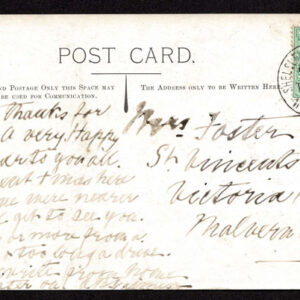 POST CARD.
ND POSTAGE ONLY THIS SPACE MAY
BE USED FOR COMMUNICATION.
THE ADDRESS ONLY TO BE WRITTEN HERE
SHEFFI
Thanks for
A very Happy
to you all.
here
were nearer
get to see you.
or more from a
too long a drive.
write from home
Mrs Foster
St Vincents
Victoria
Malvern